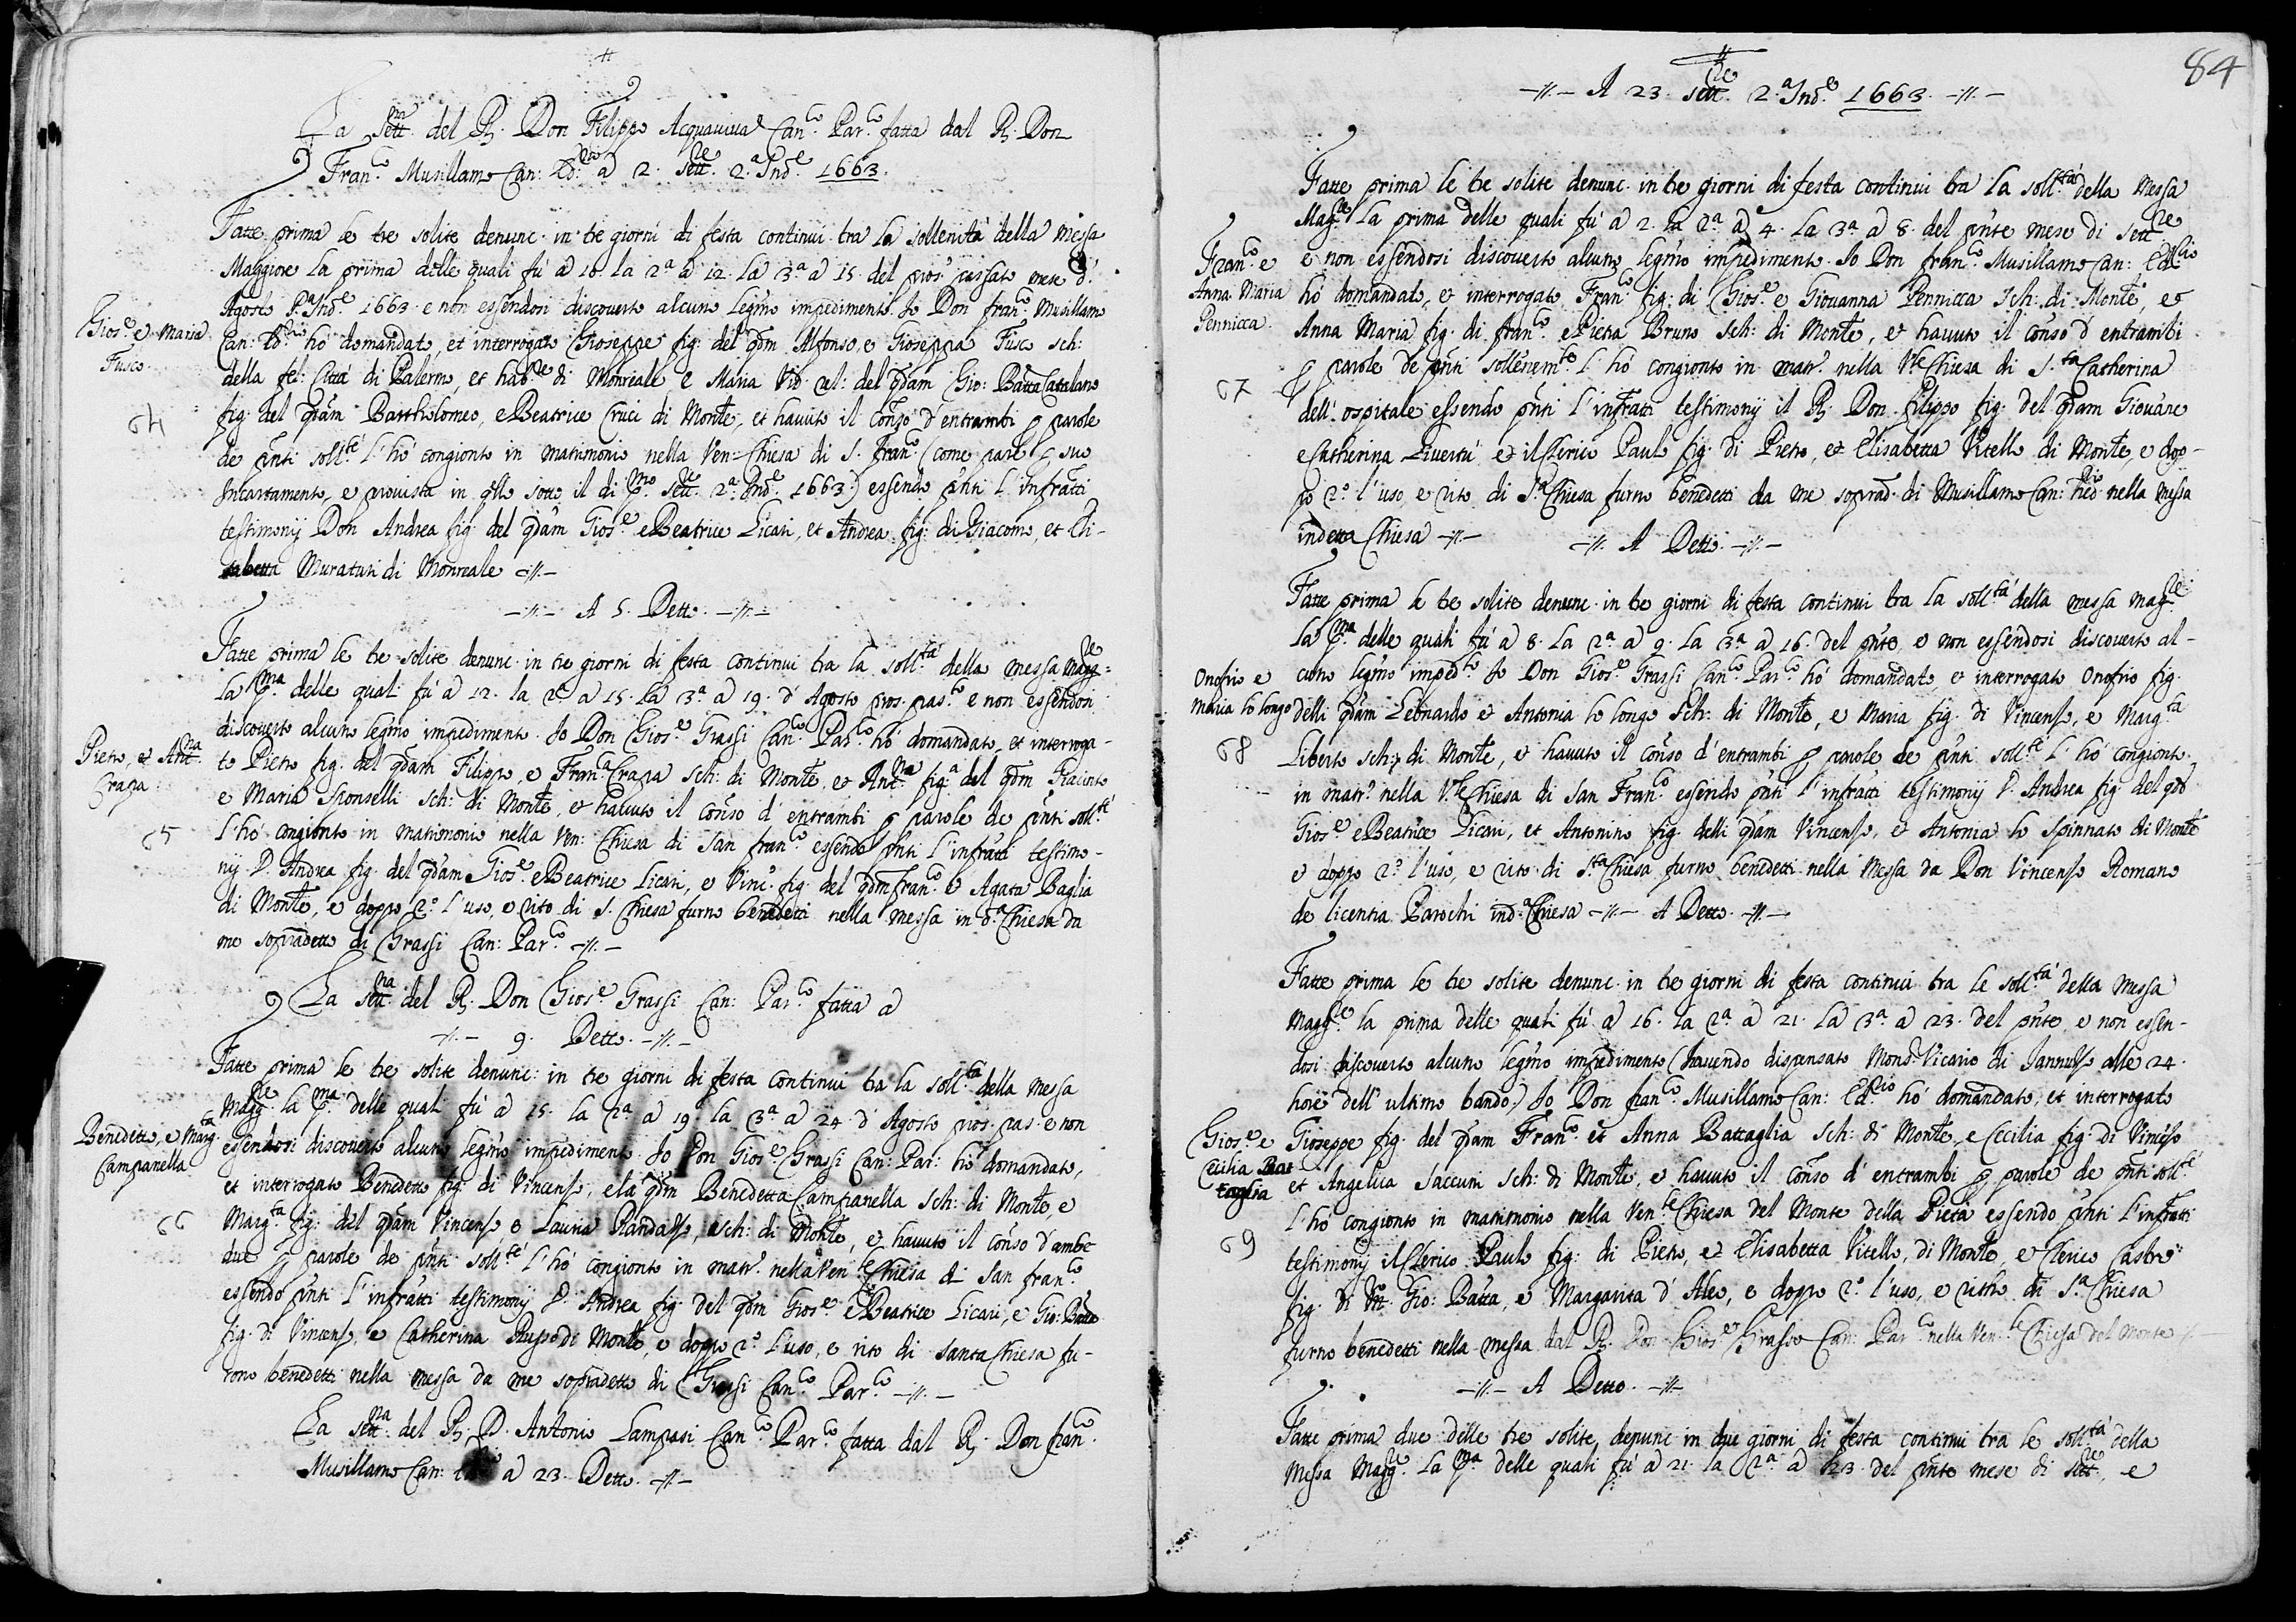 La Sett.na del R. Don Filippo Acquaviva Can.co Par.co fatta dal R. Don
Fran.co Musillamo Can: Ed.rio a 2. sett.re 2.a Ind.e 1663.
Fatte prima le tre solite denunc. in tre giorni di festa continui tra la sollenità della Messa
Maggiore la prima delle quali fú a 10. la 2.a a 12. la 3.a a 15. del pros.o passato mese d'
Agosto P.a Ind.e 1663. e non essendosi discoverto alcuno legmo impedimento. Io Don fran.co Musillamo
Gios.e et Maria
Fusco
Can: Ed.rio hó domandato, et interrogato Gioseppe fig: del qdm Alfonso, e Gioseppa Fusco sch:
della fel: Cittá di Palermo, et hab.re di Monreale e Maria Vid. rel: del qdam Gio: Batta Catalano
64
fig: del qdam Bartholomeo, e Beatrice Cruci di Monte, et havuto il conso d'entrambi p parole
de pnti soll.té l'hó congionto in matrimonio nella Ven: Chiesa di S. Fran.co (come pare p suo
Incartamento, e provista in esso sotto il di p.mo sett.re 2.a Ind.e 1663.) essendo pnti l'infratti
testimonij Don Andrea fig: del qdam Gios.e e Beatrice Licari, et Andrea fig: di Giacomo, et Eli-
sabetta Muraturi di Monreale -//.-
-//.- A 5. Detto. -//.-
Fatte prima le tre solite denunc. in tre giorni di festa continui tra la soll.tá della messa Magg.re
la p.ma delle quali fú a 12. la 2.a a 15. la 3.a a 19. d'Agosto pros. pas.to e non essendosi
discoverto alcuno legmo impedimento. Io Don Gios.e Grassi Can.co Par.co hó domandato, et interroga-
Pietro, et Ant.na
Crapa
to Pietro fig: del qdam Filippo, e Fran.ca Crapa sch: di Monte, et Ant.na fig.a del qdm Giacinto
e Maria Sponselli sch: di Monte, et havuto il conso d'entrambi p parole de pnti soll.té
65
l'hó congionto in matrimonio nella Ven: Chiesa di San fran.co essendo pnti l'infratti testimo-
nij D. Andrea fig. del qdam Gios.e e Beatrice Licari, e Vinc.o fig. del qdm Fran.co e Agata Baglia
di Monte, e doppo 2.o l'uso, e rito di S. Chiesa furno benedetti nella messa in d.a Chiesa da
me sopradetto di Grassi Can: Par.co -//.-
La sett.na del R. Don Gios.e Grassi Can: Par.co fatta a
-//.- 9. Detto. -//.-
Fatte prima le tre solite denunc: in tre giorni di festa continui tra la soll.tá della Messa
Magg.re la p.ma delle quali fú a 15. la 2.a a 19 la 3.a a 24. d'Agosto pros. pas. e non
Benedetto, e Marg.ta
Campanella
essendosi discoverto alcuno legmo impedimento. Io Don Gios.e Grassi Can: Par: hó domandato,
et interrogato Benedetto fig: di Vincenso, e la qdm Benedetta Campanella Sch: di Monte, e
66
Marg.ta fig: del qdam Vincenso, e Lauria Randasso, sch: di Monte, et havuto il conso d'ambe
due p parole de pnti soll.té l'hó congionto in matr.o nella Ven.le Chiesa di San fran.co
essendo pnti l'infratti testimonij D. Andrea fig. del qdm Gios.e e Beatrice Licari, e Gio: Batta
fig. di Vincenso, e Catherina Russo di Monte, e doppo 2.o l'uso, e rito di Santa Chiesa fu-
rono benedetti nella messa da me sopradetto di Grassi Can.co Par.co -//.-
La sett.na del R. D. Antonio Lampasi Can.co Par.co fatta dal R. Don fran.co
Musillamo Can: a 23. Detto. -//.-
84
-//.- A 23. sett.re 2.a Ind.e 1663. -//.-
Fatte prima le tre solite denunc. in tre giorni di festa continui tra la soll.tá della Messa
Mag.re la prima delle quali fú a 2. la 2.a a 4. la 3.a a 8. del pnte mese di Sett.re
Fran.co e
Anna Maria
Pennicca
e non essendosi discoverto alcuno legmo impedimento. Io Don fran.co Musillamo Can: Ed.rio
hó domandato, et interrogato Fran.co fig: di Gios.e e Giovanna Pennicca Sch: di Monte, et
Anna Maria fig. di fran.co e Pietra Bruno Sch: di Monte, et havuto il conso d'entrambi
67
p parole de pnti sollenem.te l'hó congionto in matr.o nella V.le Chiesa di S.ta Catherina
dell'ospitale essendo pnti l'infratti testimonij il R. Don Filippo fig: del qdam Giovane
e Catherina Livertú et il Clerico Paulo fig. di Pietro, et Elisabetta Vitello di Monte, e dop-
po 2.o l'uso, e rito di S.a Chiesa furno benedetti da me soprad.o di Musillamo Can: nella Messa
in detta Chiesa -//.-
-//.- A Detto. -//.-
Fatte prima le tre solite denunc. in tre giorni di festa continui tra la soll.tá della messa mag.re
la p.ma delle quali fú a 8. la 2.a a 9. la 3.a a 16. del pnte e non essendosi discoverto al-
Onofrio e
Maria lo longo
cuno legmo imped.to Io Don Gios.e Grassi Can.co Par.co hó domandato, et interrogato Onofrio fig.
delli qdam Leonardo et Antonia lo longo Sch: di Monte, e Maria fig. di Vincenso, e Marg.ta
68
Liberto sch: di Monte, et havuto il conso d'entrambi p parole de pnti soll.té l'hó congionto
in matr.o nella V.le Chiesa di San Fran.co essendo pnti l'infratti testimonij D. Andrea fig. del qd
Gios.e e Beatrice Licari, et Antonino fig. delli qdam Vincenso, et Antonia lo Spinnato di Monte
e doppo 2.o l'uso, e rito di S.ta Chiesa furno benedetti nella Messa da Don Vincenso Romano
de licentia Parochi in d.a Chiesa -//.- A Detto. -//.-
Fatte prima le tre solite denunc. in tre giorni di festa continui tra le soll.tá della Messa
Magg.re la prima delle quali fú a 16. la 2.a a 21. la 3.a a 23. del pnte e non essen-
dosi discoverto alcuno legmo impedimento (havendo dispensato Mons.r Vicario di Iannusso alle 24.
hore dell'ultimo bando.) Io Don fran.co Musillamo Can: Ed.rio hó domandato, et interrogato
Gios.e e
Cecilia Bat
taglia
Gioseppe fig. del qdam Fran.co et Anna Battaglia Sch: di Monte, e Cecilia fig. di Vinceso
et Angelica Saccum Sch: di Monte, et havuto il conso d'entrambi p parole de pnti soll.té
69
l'hó congionto in matrimonio nella Ven.le Chiesa del Monte della Pietá essendo pnti l'infratti
testimonij il Clerico Paulo fig. di Pietro, et Elisabetta Vitello, di Monte, e Clerico Castre
fig. di Gio: Batta, e Margarita d'Aleo, e doppo 2.o l'uso, e ritto di S.a Chiesa
furno benedetti nella messa dal R. Don Gios.e Grasso Can: Par.co nella Ven.le Chiesa del Monte //.
-//.- A Detto. -//.-
Fatte prima due delle tre solite denunc in due giorni di festa continui tra le soll.tá della
Messa Magg.re la p.ma delle quali fú a 21. la 2.a a 23. del pnte mese di sett.re, e